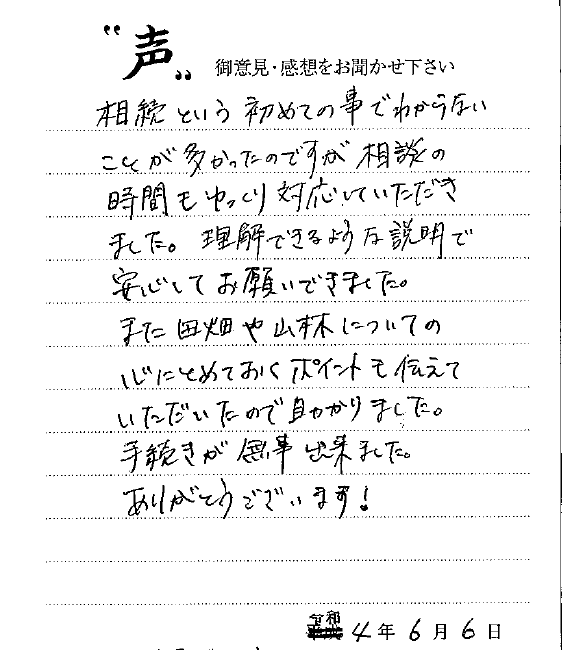 "声" 御意見・感想をお聞かせ下さい
相続という初めての事でわからない
ことが多かったのですが相談の
時間もゆっくり対応していただき
ました。理解できるような説明で
安心してお願いできました。
また田畑や山林についての
心にとめておくポイントも伝えて
いただいたので助かりました。
手続きが無事出来ました。
ありがとうございます!
令和
4年6月6日